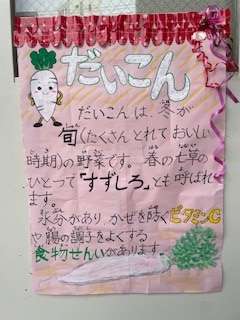 だいこん
だいこんは、冬が
旬(たくさんとれておいしい
時期)の野菜です。春の七草の
ひとつで「すずしろ」とも呼ばれ
ます。
水分があり、かぜを防ぐビタミンC
や腸の調子をよくする
食物せんいがあります。